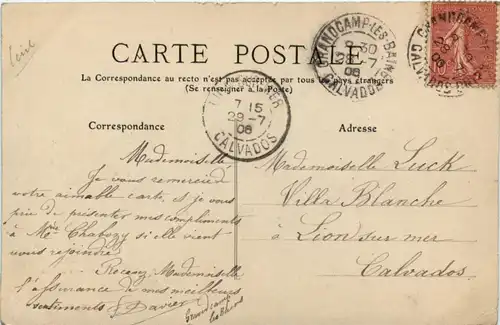 CARTE POSTALE
La Correspondance au recto n'est pas acceptée par tous les pays étrangers
(Se renseigner à la Poste)
GRANDCAMP-LES-BAINS
28-7
08
CALVADOS
GRANDCAMP
CALVADOS
7 15
29-7
08
CALVADOS
Correspondance
Adresse
Mademoiselle
Je vous remercie de
votre aimable carte, et je vous
prie de présenter mes compliments
à Melle Chabozy si elle vient
vous rejoindre.
Recevez, Mademoiselle
l'assurance de mes meilleurs
sentiments
Grandcamp
les Bains
Mademoiselle Luck
Villa Blanche
à Lion sur mer
Calvados.